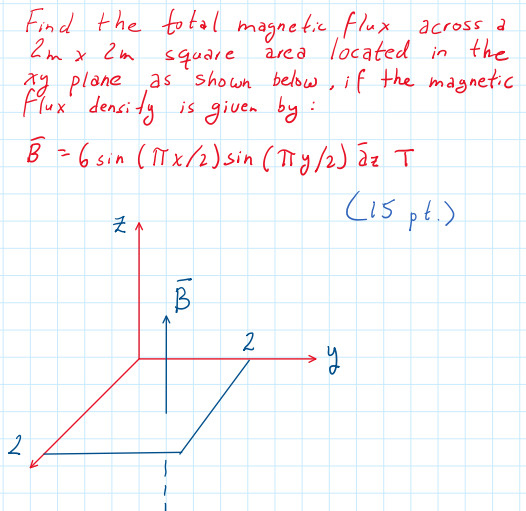 Find the total magnetic flux across a
2m x 2m square area located in the
xy plane as shown below, if the magnetic
flux density is given by:
B̄ = 6 sin (πx/2) sin (πy/2) āz T
(15 pt.)
z
B̄
2
y
2